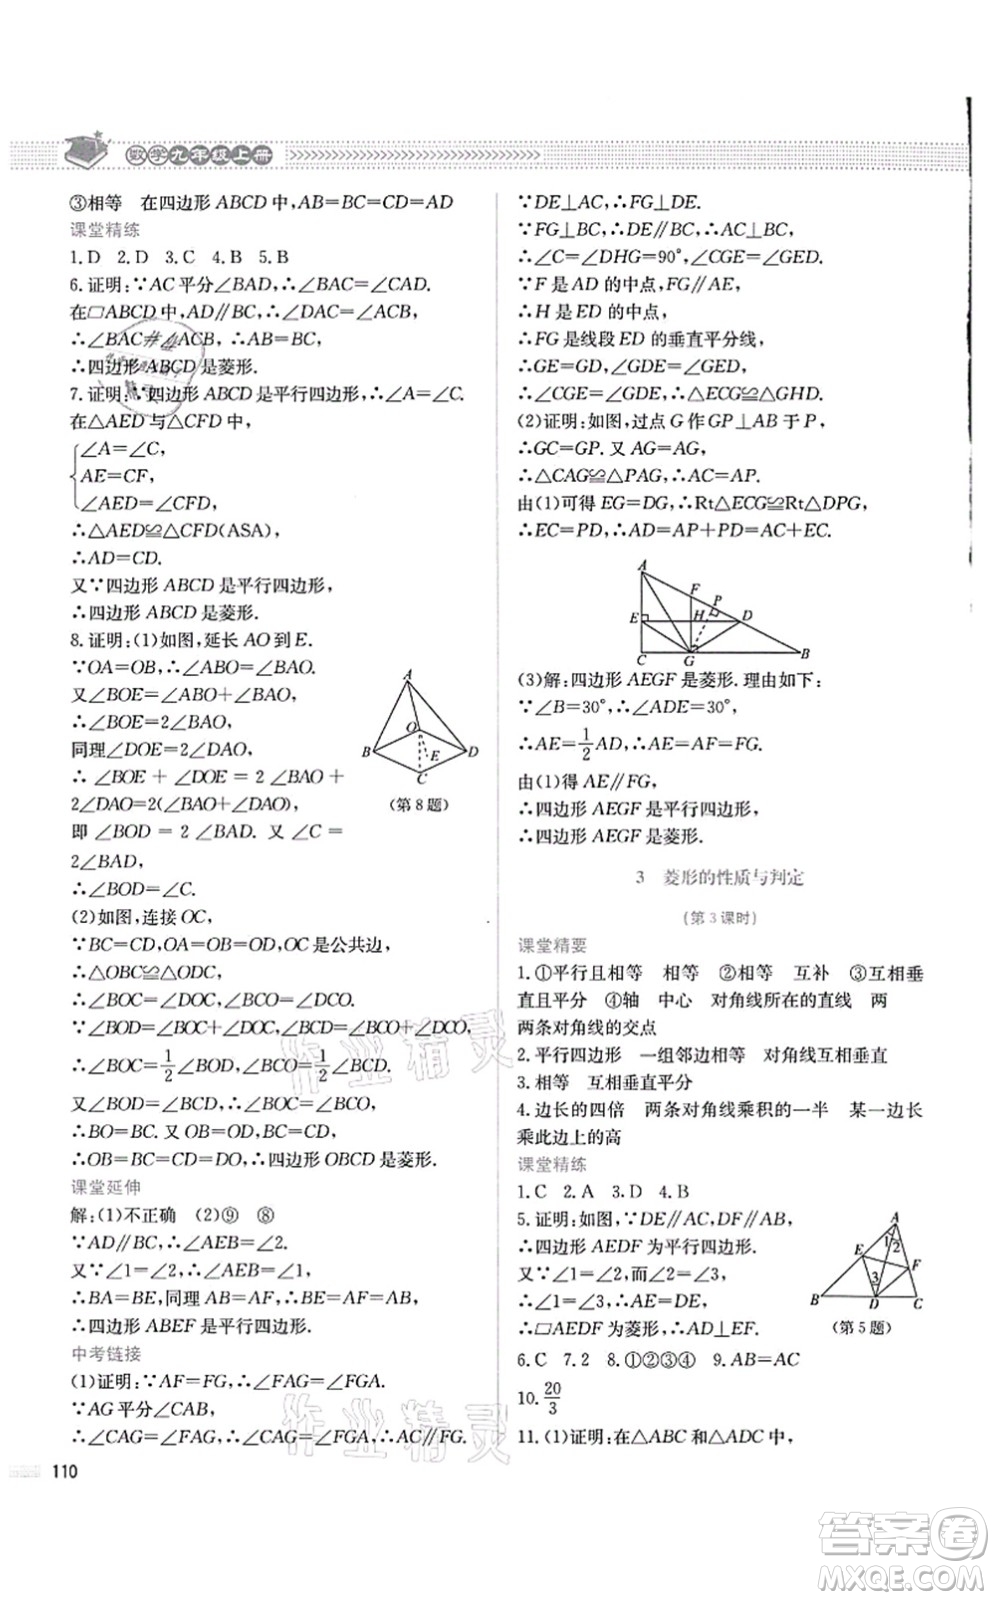 数学九年级上册
③相等 在四边形 ABCD 中,AB=BC=CD=AD
课堂精练
1. D 2. D 3. C 4. B 5. B
6. 证明:∵AC 平分∠BAD,∴∠BAC=∠CAD.
在▱ABCD 中,AD∥BC,∴∠DAC=∠ACB,
∴∠BAC=∠ACB,∴AB=BC,
∴四边形 ABCD 是菱形.
7. 证明:∵四边形 ABCD 是平行四边形,∴∠A=∠C.
在△AED 与△CFD 中,
∠A=∠C,
AE=CF,
∠AED=∠CFD,
∴△AED≌△CFD(ASA),
∴AD=CD.
又∵四边形 ABCD 是平行四边形,
∴四边形 ABCD 是菱形.
8. 证明:(1)如图,延长 AO 到 E.
∵OA=OB,∴∠ABO=∠BAO,
又∠BOE=∠ABO+∠BAO,
∴∠BOE=2∠BAO,
同理∠DOE=2∠DAO,
∴∠BOE + ∠DOE = 2∠BAO +
2∠DAO=2(∠BAO+∠DAO),
即 ∠BOD = 2 ∠BAD. 又 ∠C =
2∠BAD,
∴∠BOD=∠C.
A
B
O
E
D
C
(第 8 题)
(2)如图,连接 OC,
∵BC=CD,OA=OB=OD,OC 是公共边,
∴△OBC≌△ODC,
∴∠BOC=∠DOC,∠BCO=∠DCO,
∵∠BOD=∠BOC+∠DOC,∠BCD=∠BCO+∠DCO,
∴∠BOC=1/2∠BOD,∠BCO=1/2∠BCD.
又∠BOD=∠BCD,∴∠BOC=∠BCO,
∴BO=BC. 又 OB=OD,BC=CD,
∴OB=BC=CD=DO,∴四边形 OBCD 是菱形.
课堂延伸
解:(1)不正确 (2)⑨ ⑧
∵AD∥BC,∴∠AEB=∠2.
又∵∠1=∠2,∴∠AEB=∠1,
∴BA=BE,同理 AB=AF,∴AF=BE.
∴四边形 ABEF 是平行四边形.
中考链接
(1)证明:∵AF=FG,∴∠FAG=∠FGA.
∵AG 平分∠CAB,∴∠CAG=∠FAG,
∴∠CAG=∠FAG,∴∠CAG=∠FGA,∴AC∥FG.
110
∵DE⊥AC,∴FG⊥DE.
∵FG⊥BC,∴DE∥BC,∴AC⊥BC,
∴∠C=∠DHG=90°,∠CGE=∠GED.
∵F 是 AD 的中点,FG∥AE,
∴H 是 ED 的中点,
∴FG 是线段 ED 的垂直平分线,
∴GE=GD,∠GDE=∠GED,
∴∠CGE=∠GDE,∴△ECG≌△GHD.
(2)证明:如图,过点 G 作 GP⊥AB 于 P,
∴GC=GP. 又 AG=AG,
∴△CAG≌△PAG,∴AC=AP.
由(1)可得 EG=DG,∴Rt△ECG≌Rt△DPG,
∴EC=PD,∴AD=AP+PD=AC+EC.
A
F
P
E
H
D
C
G
B
(3)解:四边形 AEGF 是菱形. 理由如下:
∵∠B=30°,∴∠ADE=30°,
∴AE=1/2AD,∴AE=AF=FG.
由(1)得 AE∥FG,
∴四边形 AEGF 是平行四边形,
∴四边形 AEGF 是菱形.
3 菱形的性质与判定
(第 3 课时)
课堂精要
1. ①平行且相等 相等 ②相等 互补 ③互相垂
直且平分 ④轴 中心 对角线所在的直线 两
两条对角线的交点
2. 平行四边形 一组邻边相等 对角线互相垂直
3. 相等 互相垂直平分
4. 边长的四倍 两条对角线乘积的一半 某一边长
乘此边上的高
课堂精练
1. C 2. A 3. D 4. B
5. 证明:如图,∵DE∥AC,DF∥AB,
∴四边形 AEDF 为平行四边形.
又∵∠1=∠2,而∠2=∠3,
∴∠1=∠3,∴AE=DE.
∴▱AEDF 为菱形,∴AD⊥EF.
A
1
2
E
F
3
B
D
C
(第 5 题)
6. C 7. 2 8. ①②③④ 9. AB=AC
10. 20/3
11. (1)证明:在△ABC 和△ADC 中,
作业精灵
作业精灵
答案卷
MXQE.COM